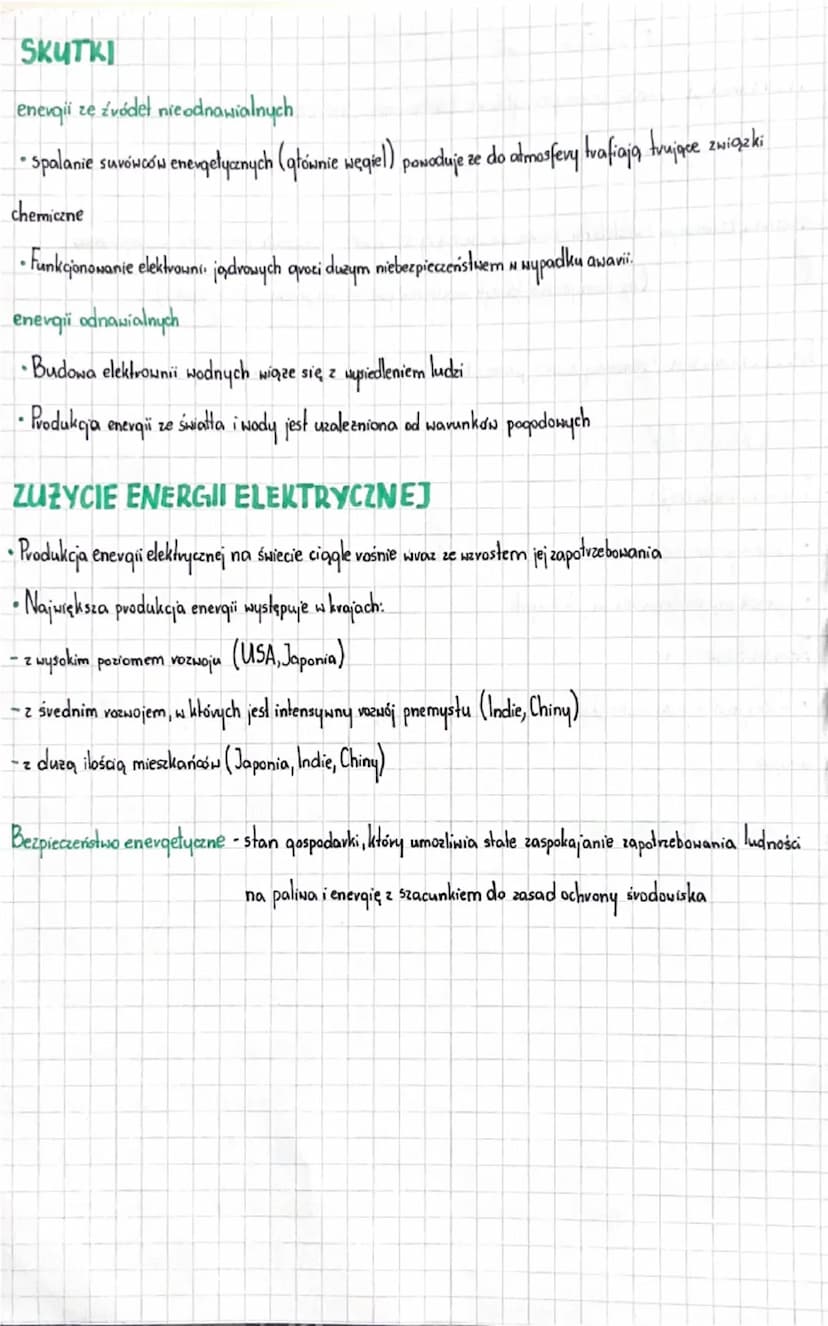 SKUTKI
energii ze źródeł nieodnawialnych
• Spalanie surowców energetycznych (głównie węgiel) powoduje ze do atmosfery trafiają trujące związki
chemiczne
• Funkcjonowanie elektrowni jądrowych grozi dużym niebezpieczeństwem w wypadku awarii.
energii odnawialnych
• Budowa elektrownii wodnych wiąze się z wysiedleniem ludzi
• Produkcja energii ze światła i wody jest uzalezniona od warunków pogodowych
ZUŻYCIE ENERGII ELEKTRYCZNEJ
• Produkcja energii elektrycznej na świecie ciągle rośnie wraz ze wzrostem jej zapotrzebowania
• Największa produkcja energii występuje w krajach:
- z wysokim poziomem rozwoju (USA, Japonia)
- z średnim rozwojem, w których jest intensywny rozwój przemysłu (Indie, Chiny)
- z duzą ilością mieszkańców (Japonia, Indie, Chiny)
Bezpieczeństwo energetyczne - stan gospodarki, który umozliwia stałe zaspokajanie zapotrzebowania ludności
na paliwa i energię z szacunkiem do zasad ochrony środowiska